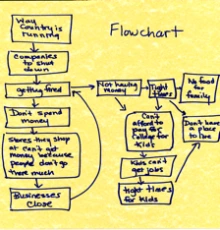 Way
Country is
running
Flowchart
companies
to shut
down
getting fired
Not having
money
Tight
times
No food
for
family
Don't spend
money
Can't
afford to
pay for
for
kids
Don't have
a place
to live
Stores they shop
at can't get
money because
people don't go
there much
Kids can't
get jobs
Businesses
close
tight times
for kids